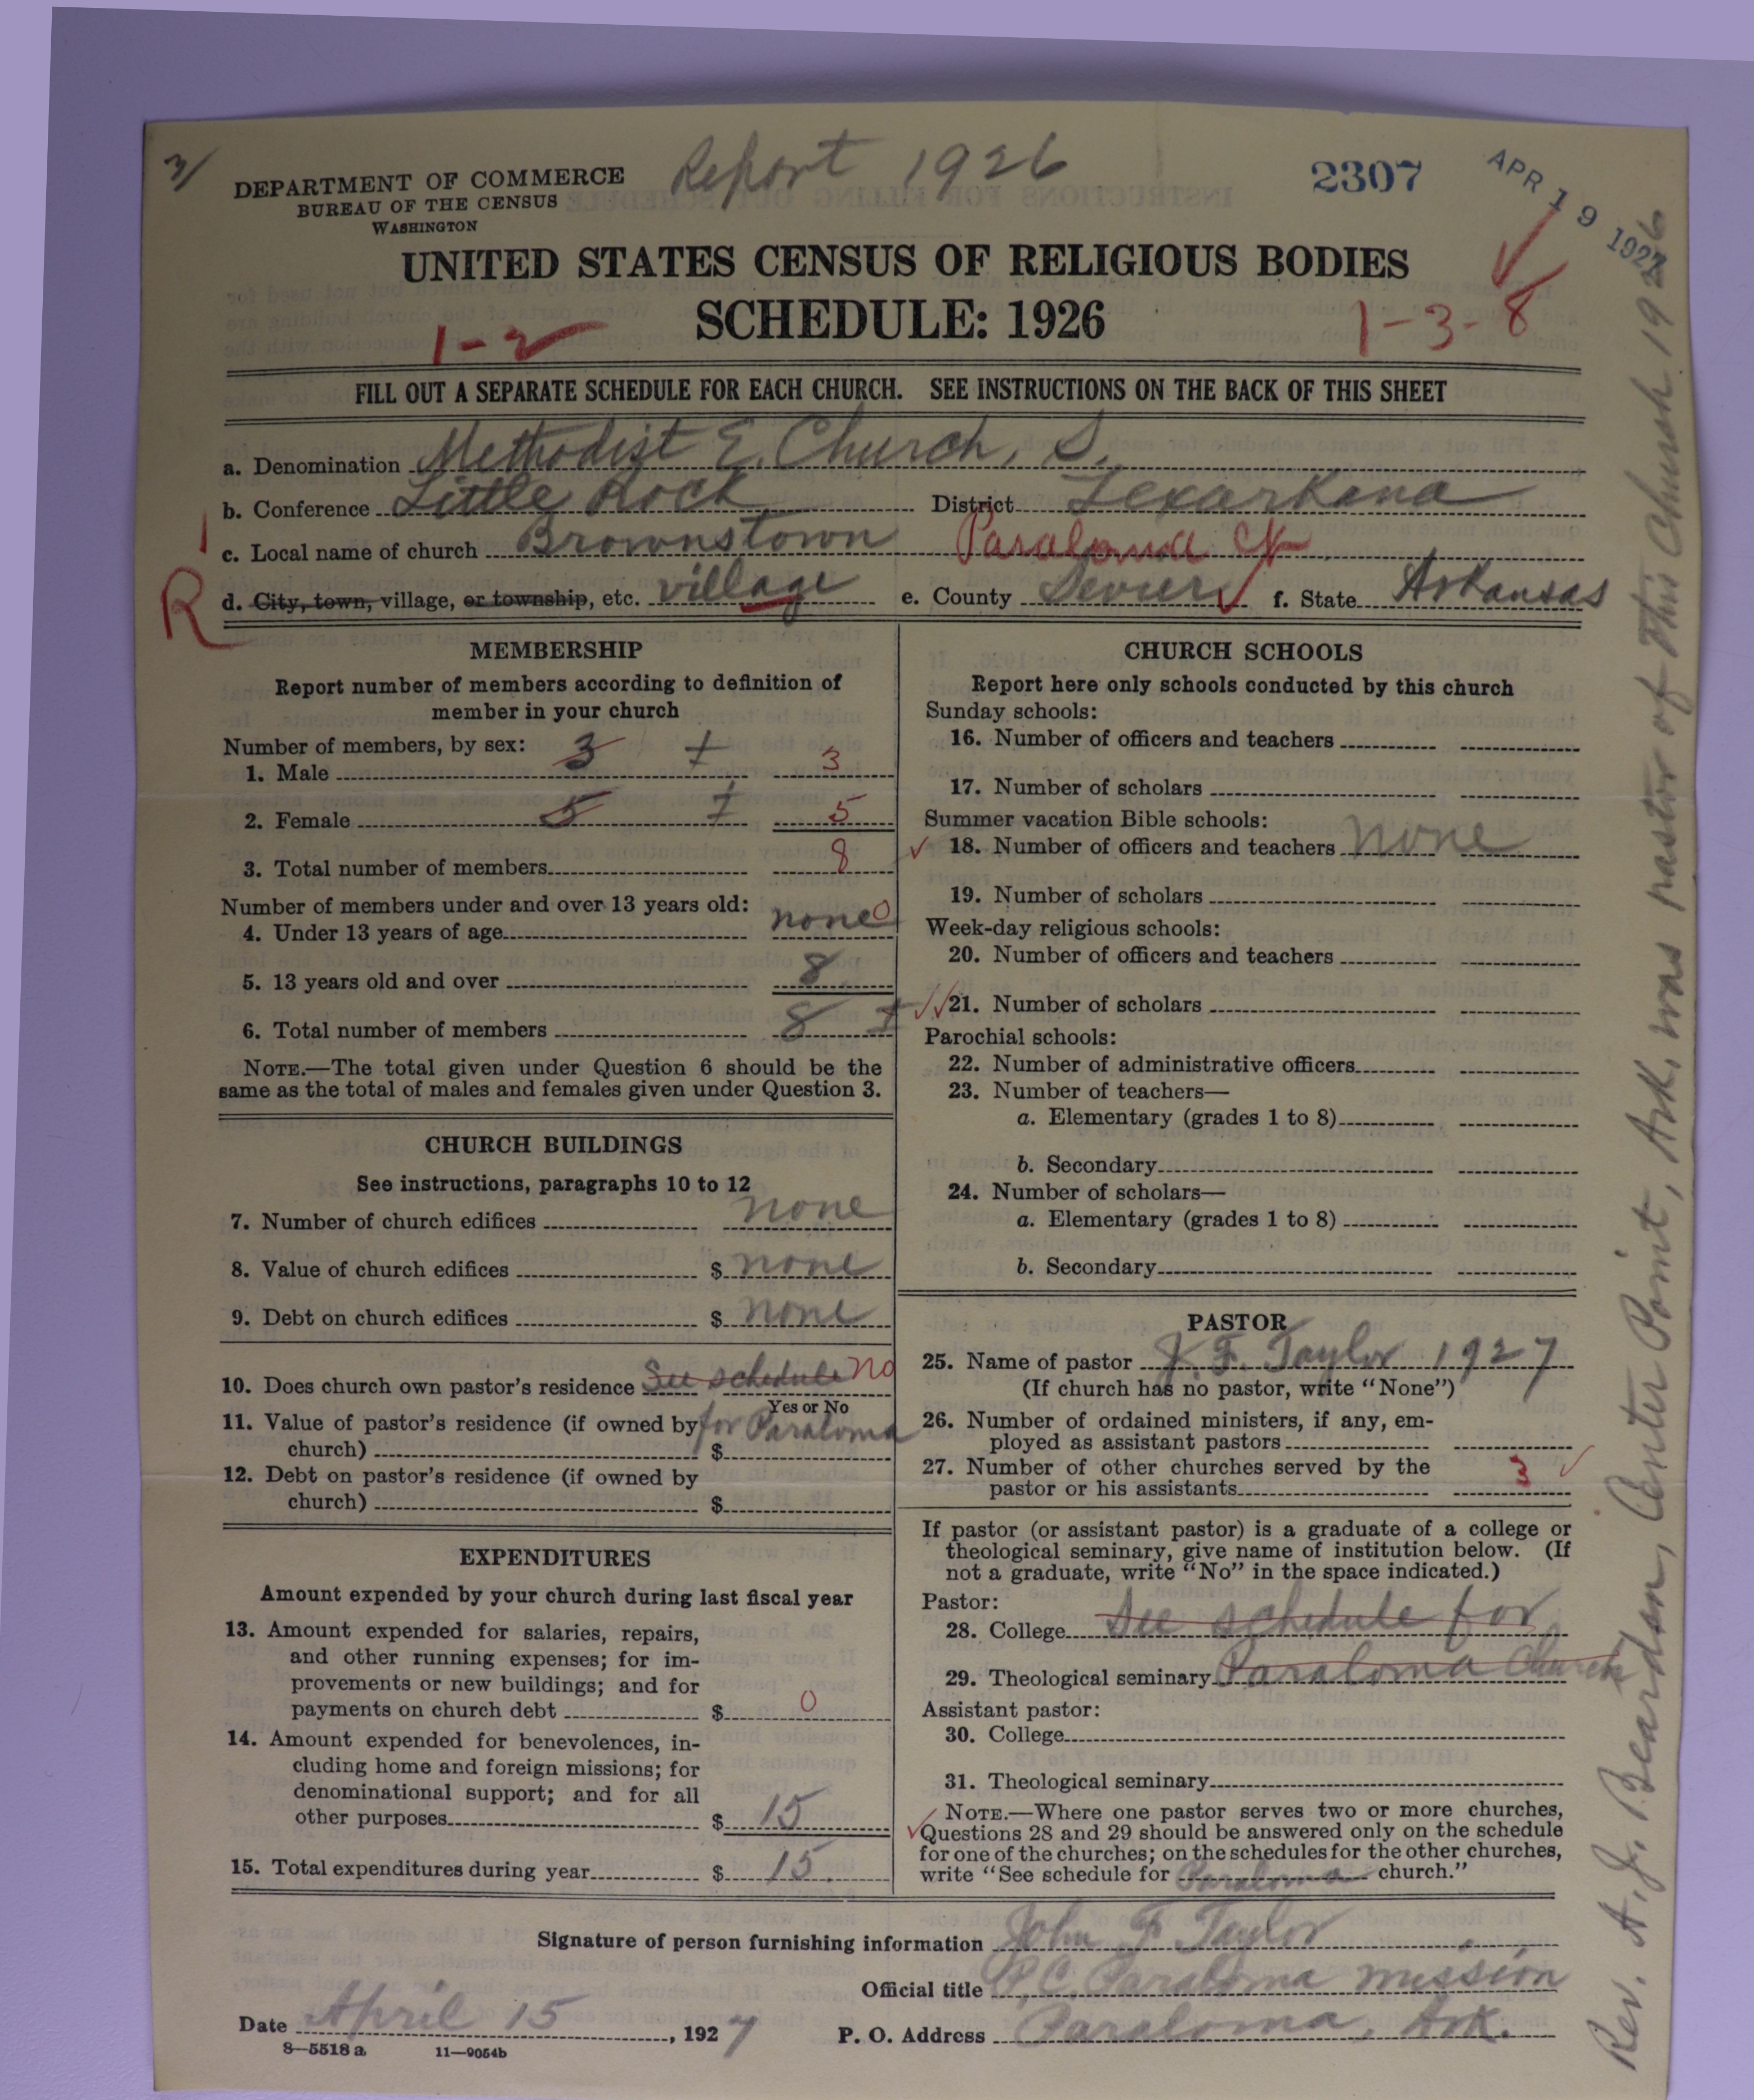 3/
DEPARTMENT OF COMMERCE
BUREAU OF THE CENSUS
WASHINGTON
Report 1926
2307
APR 19 192
UNITED STATES CENSUS OF RELIGIOUS BODIES
SCHEDULE: 1926
1-2
1-3-8
FILL OUT A SEPARATE SCHEDULE FOR EACH CHURCH. SEE INSTRUCTIONS ON THE BACK OF THIS SHEET
a. Denomination Methodist E. Church, S.
b. Conference Little Rock District Texarkana
c. Local name of church Brownstown Paraloma Ct
R d. City, town, village, or township, etc. village e. County Sevier f. State Arkansas
MEMBERSHIP
Report number of members according to definition of
member in your church
Number of members, by sex:
1. Male 3 3
2. Female 5 5
3. Total number of members 8
Number of members under and over 13 years old:
4. Under 13 years of age none 0
5. 13 years old and over 8
6. Total number of members 8
NOTE.—The total given under Question 6 should be the
same as the total of males and females given under Question 3.
CHURCH BUILDINGS
See instructions, paragraphs 10 to 12
7. Number of church edifices none
8. Value of church edifices $ none
9. Debt on church edifices $ none
10. Does church own pastor's residence See schedule no
Yes or No
11. Value of pastor's residence (if owned by for Paraloma
church) $
12. Debt on pastor's residence (if owned by
church) $
EXPENDITURES
Amount expended by your church during last fiscal year
13. Amount expended for salaries, repairs,
and other running expenses; for im-
provements or new buildings; and for
payments on church debt $ 0
14. Amount expended for benevolences, in-
cluding home and foreign missions; for
denominational support; and for all
other purposes $ 15
15. Total expenditures during year $ 15.
CHURCH SCHOOLS
Report here only schools conducted by this church
Sunday schools:
16. Number of officers and teachers
17. Number of scholars
Summer vacation Bible schools:
18. Number of officers and teachers none
19. Number of scholars
Week-day religious schools:
20. Number of officers and teachers
21. Number of scholars
Parochial schools:
22. Number of administrative officers
23. Number of teachers—
a. Elementary (grades 1 to 8)
b. Secondary
24. Number of scholars—
a. Elementary (grades 1 to 8)
b. Secondary
PASTOR
25. Name of pastor J. F. Taylor 1927
(If church has no pastor, write "None")
26. Number of ordained ministers, if any, em-
ployed as assistant pastors
27. Number of other churches served by the
pastor or his assistants 3
If pastor (or assistant pastor) is a graduate of a college or
theological seminary, give name of institution below. (If
not a graduate, write "No" in the space indicated.)
Pastor:
28. College See schedule for
29. Theological seminary Paraloma Church
Assistant pastor:
30. College
31. Theological seminary
NOTE.—Where one pastor serves two or more churches,
Questions 28 and 29 should be answered only on the schedule
for one of the churches; on the schedules for the other churches,
write "See schedule for Paraloma church."
Signature of person furnishing information John F Taylor
Official title P.C. Paraloma mission
Date April 15, 1927 P. O. Address Paraloma, Ark.
8—5518 a 11—9054b
Rev. A. J. Beardson, Center Point, Ark, was pastor of this Church 1926